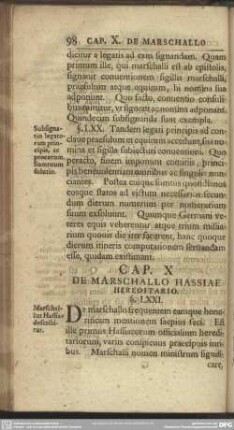 98 CAP. X. DE MARSCHALLO
dicitur a legatis ad eam signandam. Quam
primum ille, qui marschalli est ab epistolis,
signavit conventionem sigillis marschalli,
præsulum atque equitum, hi nomina sua
adponunt. Quo facto, conventio consili-
adponant.
Quandecim subsignanda sunt exempla.
Subsigna-
tio legato-
rum prin-
cipis, et
procerum
honorum
solutio.
§. LXX. Tandem legati principis ad con-
clave præsulum et equitum accedunt, sua no-
mina et sigilla subiectum conventioni. Quo
peracto, finem imponunt comitiis, princi-
pis benevolentiam omnibus ac singulis nun-
ciantes. Postea cuique sumtus quotidianos
eosque statos ad victum necessarios secun-
dum dierum numerum per
suum exsolvunt. Quumque Germani ve-
teres equis veherentur atque unum millia-
rium quovis die iter facerent, hanc quoque
dierum itineris computationem servandam
esse, quidam existimant.
CAP. X
DE MARSCHALLO HASSIAE
HEREDITARIO.
§. LXXI.
Marschal-
lus Hassiae
describi-
tur.
De marschallo frequentem eumque hono-
rificum mentionem sæpius feci. Est
ille primus Hassicorum officialium heredi-
tariorum, variis conspicuus præcipuis iuri-
bus. Marschalli nomen ministrum signifi-
care,